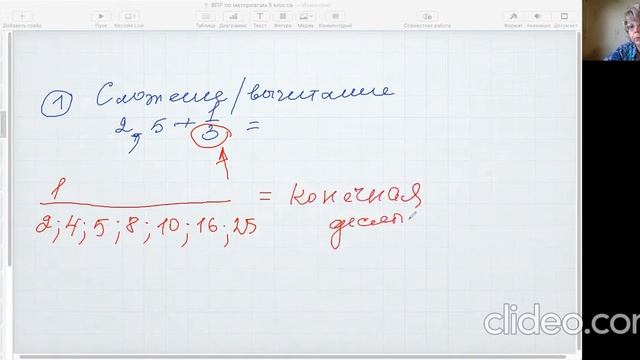 ВПР по математике 5 класса — Изменено
Добавить слайд
Пуск
Keynote Live
Таблица
Диаграмма
Текст
Фигура
Медиа
Комментарий
Совместная работа
Формат
Анимация
Документ
① Сложение/вычитание
2,5 + 1/3 =
1
2; 4; 5; 8; 10; 16; 25
= конечная
десят
clideo.com